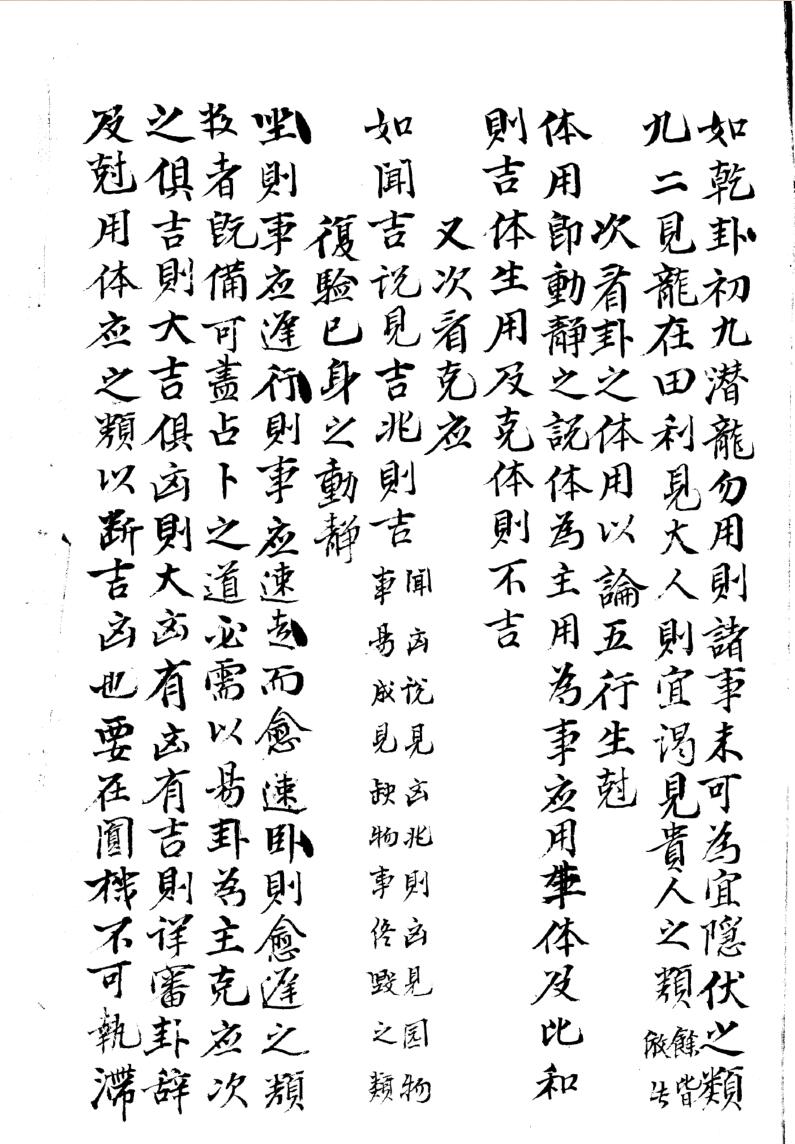 如乾卦初九潜龍勿用則諸事未可為宜隱伏之類
九二見龍在田利見大人則宜謁見貴人之類餘皆倣此
次看卦之体用以論五行生尅
体用即動靜之説体為主用為事应用生体及比和
則吉体生用及克体則不吉
又次看克应
如聞吉说見吉兆則吉
聞凶说見凶兆則凶見圆物
事易成見缺物事终毀之類
復驗已身之動靜
坐則事应遲行則事应速走而愈速卧則愈遲之類
数者既備可盡占卜之道必需以易卦為主克应次
之俱吉則大吉俱凶則大凶有凶有吉則详審卦辞
及尅用体应之類以断吉凶也要在圓機不可執滯